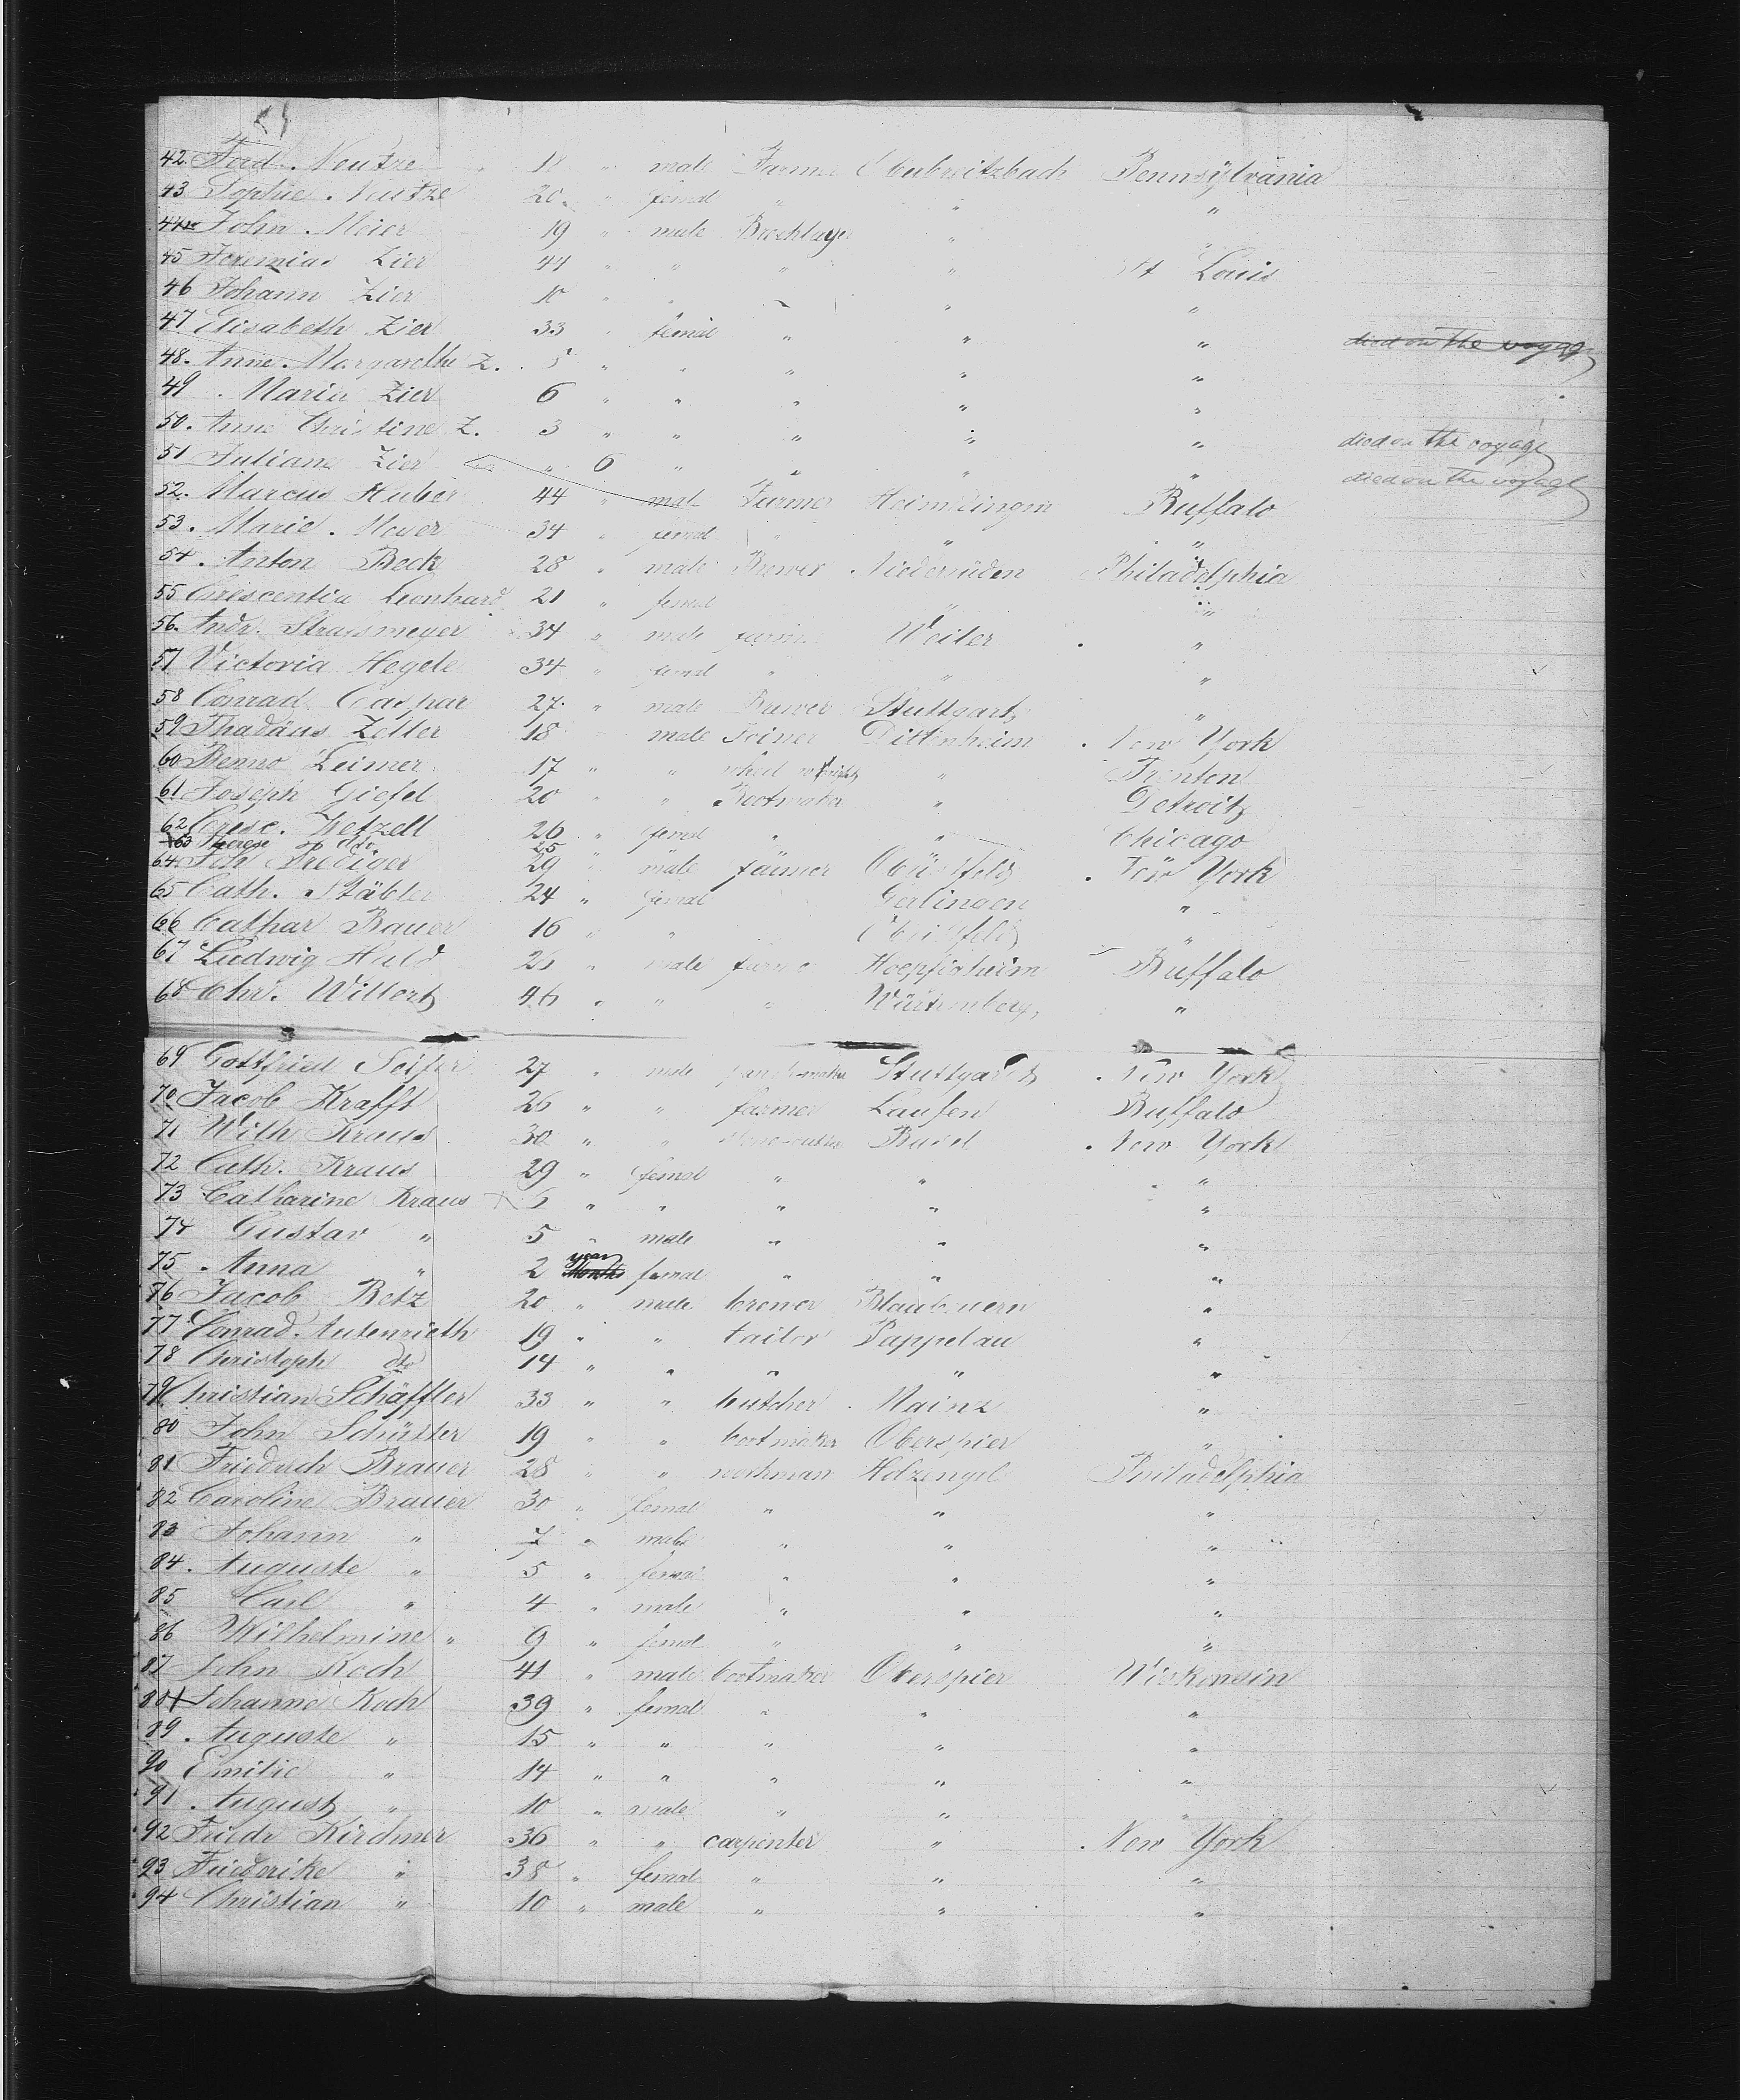 42. Ferd. Neutze 18 " male Farmer Oberbreitzbach Pennsÿlvania
43 Sophie Neutze 20 " femal " " "
44 John Meier 19 " male " "
45 Jeremias Zier 44 " " " " St Louis
46 Johann Zier 10 " " " " "
47 Elisabeth Zier 33 " femal " " " died on the voyage
48. Anne Margarethe Z. 5 " " " " "
49 Maria Zier 6 " " " " "
50. Anne Christine Z. 3 " " " " " died on the voyage
51 Juliane Zier " 6 " " " " died on the voyage
52. Marcus Huber 44 " male Farmer Buffalo
53. Marie Meyer 34 " femal " " "
54. Anton Beck 28 " male Brewer Philadelphia
55 Crescentia Leonhard 21 " femal " "
56. Andr. Strassmeyer 34 " male farmer Weiler "
57 Victoria Hegele 34 " femal " " "
58 Conrad Caspar 27 " male Brewer Stuttgart "
59 Thadäus Zeller 18 male Joiner Dittenheim New York
60 Benno Leimer 17 " " wheel wright " Trenton
61 Joseph Giefel 20 " " Bootmaker " Detroit
62 Cresc. Wetzell 26 " femal " " Chicago
63 Therese do 25
64 Joh Prediger 29 " male farmer New York
65 Cath. Stäbler 24 " femal Gerlingen "
66 Cathar Bauer 16 " " "
67 Ludwig Hald 26 " male farmer Hoepfigheim Buffalo
68 Chr. Willert 46 " " " Würtemberg "
69 Gottfried Seifer 27 " male Stuttgart New York
70 Jacob Krafft 26 " " farmer Laufen Buffalo
71 Wilh Kraus 30 " " Basel New York
72 Cath. Kraus 29 " femal " " "
73 Catharine Kraus 6 " " " " "
74 Gustav " 5 " male " " "
75 Anna " 2 Months year femal " " "
76 Jacob Betz 20 " male brewer Blaubeuern "
77 Conrad Autenrieth 19 " " tailor Pappelau "
78 Christoph do 14 " " " " "
79 Christian Schäffler 33 " " butcher Mainz "
80 John Schütter 19 " " bootmaker Oberspier "
81 Friedrich Brauer 28 " " workman Holzengel Philadelphia
82 Caroline Brauer 30 " femal " " "
83 Johann " 7 " male " " "
84. Auguste " 5 " femal " " "
85 Carl " 4 " male " " "
86 Wilhelmine " 9 " femal " " "
87 John Koch 41 " male bootmaker Oberspier Wiskonsin
88 Johanne Koch 39 " femal " " "
89. Auguste " 15 " " " " "
90 Emilie " 14 " " " " "
91 August " 10 " male " " "
92 Friedr Kirchner 36 " " carpenter " New York
93 Friederike " 38 " femal " " "
94 Christian " 10 " male " " "